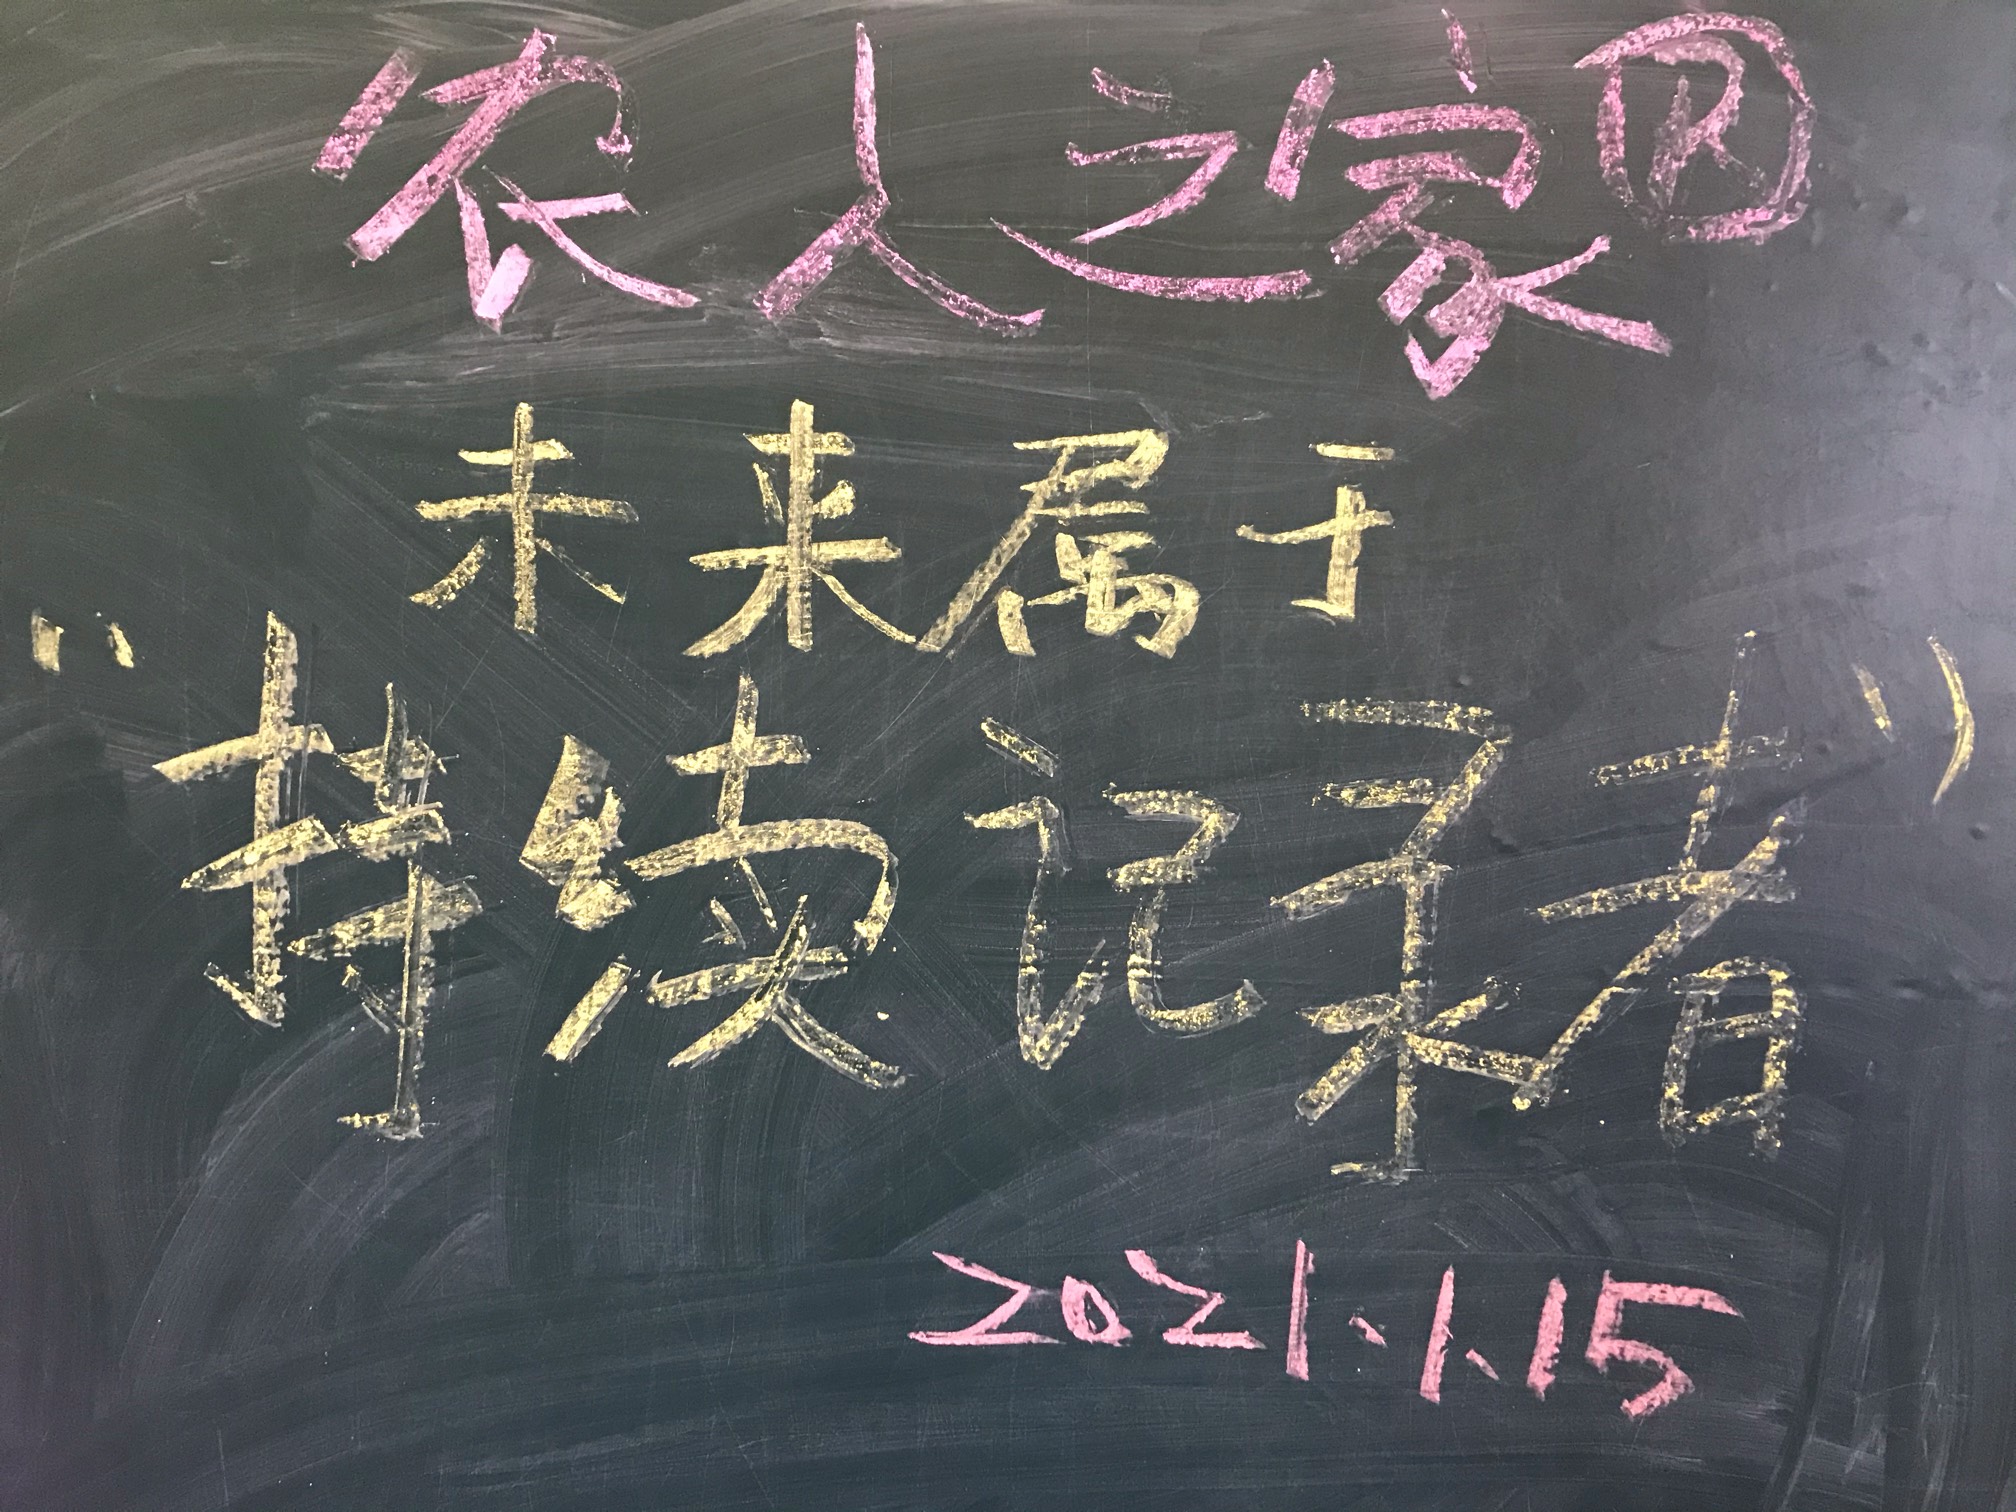 农人之家®
未来属于
“持续记录者”
2021.1.15